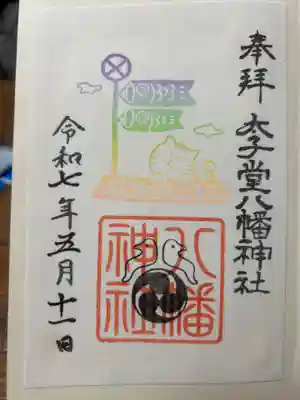 奉拝
太子堂八幡神社
八幡
神社
令和七年五月十一日